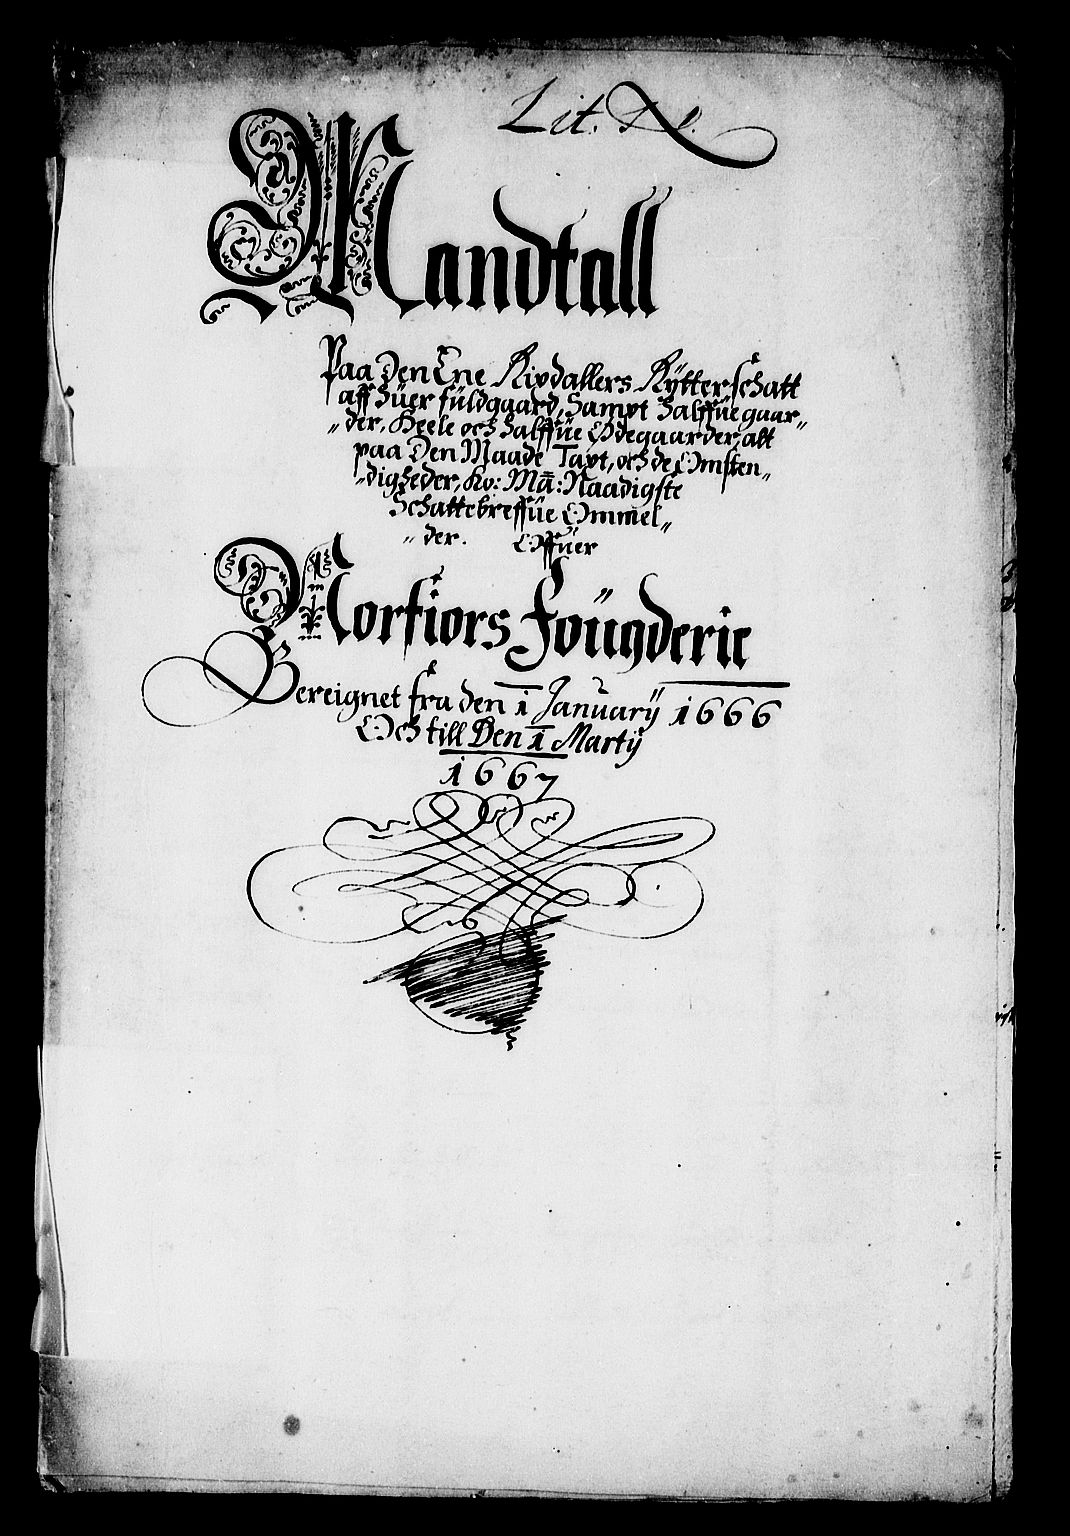 Lit.
Mandtall
Paa Den Ene Rixdallers Rÿtter schatt
aff huer füldgaard, Sampt halffüe gaar„
„der, Heele och halffüe Ødegaarder, alt
paa Den Maade Taxt, och de Omsten„
„digheder, Ko: Ma: Naadigste
Schattebreffüe Ommel„
„der. Offuer
Norfiors Foügderie
Bereignet fra den 1 Januarÿ 1666
Och till Den 1 Martÿ
1667